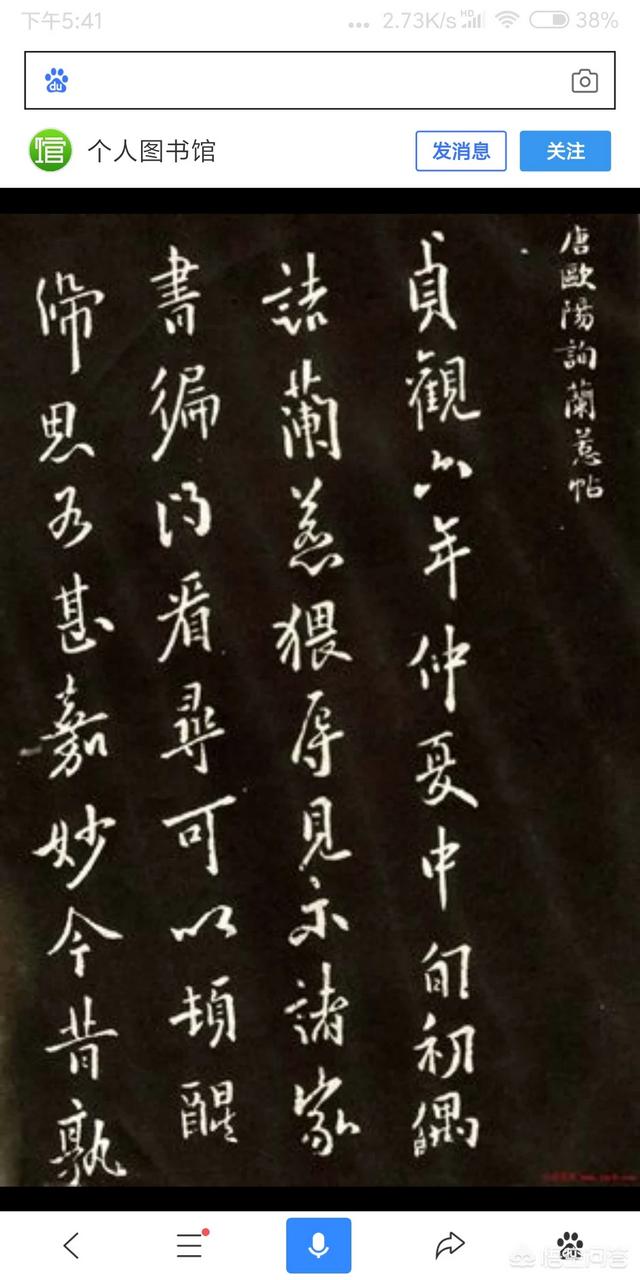 下午5:41
... 2.73K/s HD 38%
du
信 个人图书馆 发消息 关注
唐歐陽詢蘭惹帖
貞觀六年仲夏中旬初偶
詰蘭惹猥辱見示諸家
書徧得看尋可以頓醒
帰思為甚嘉妙今昔孰
悟空问答